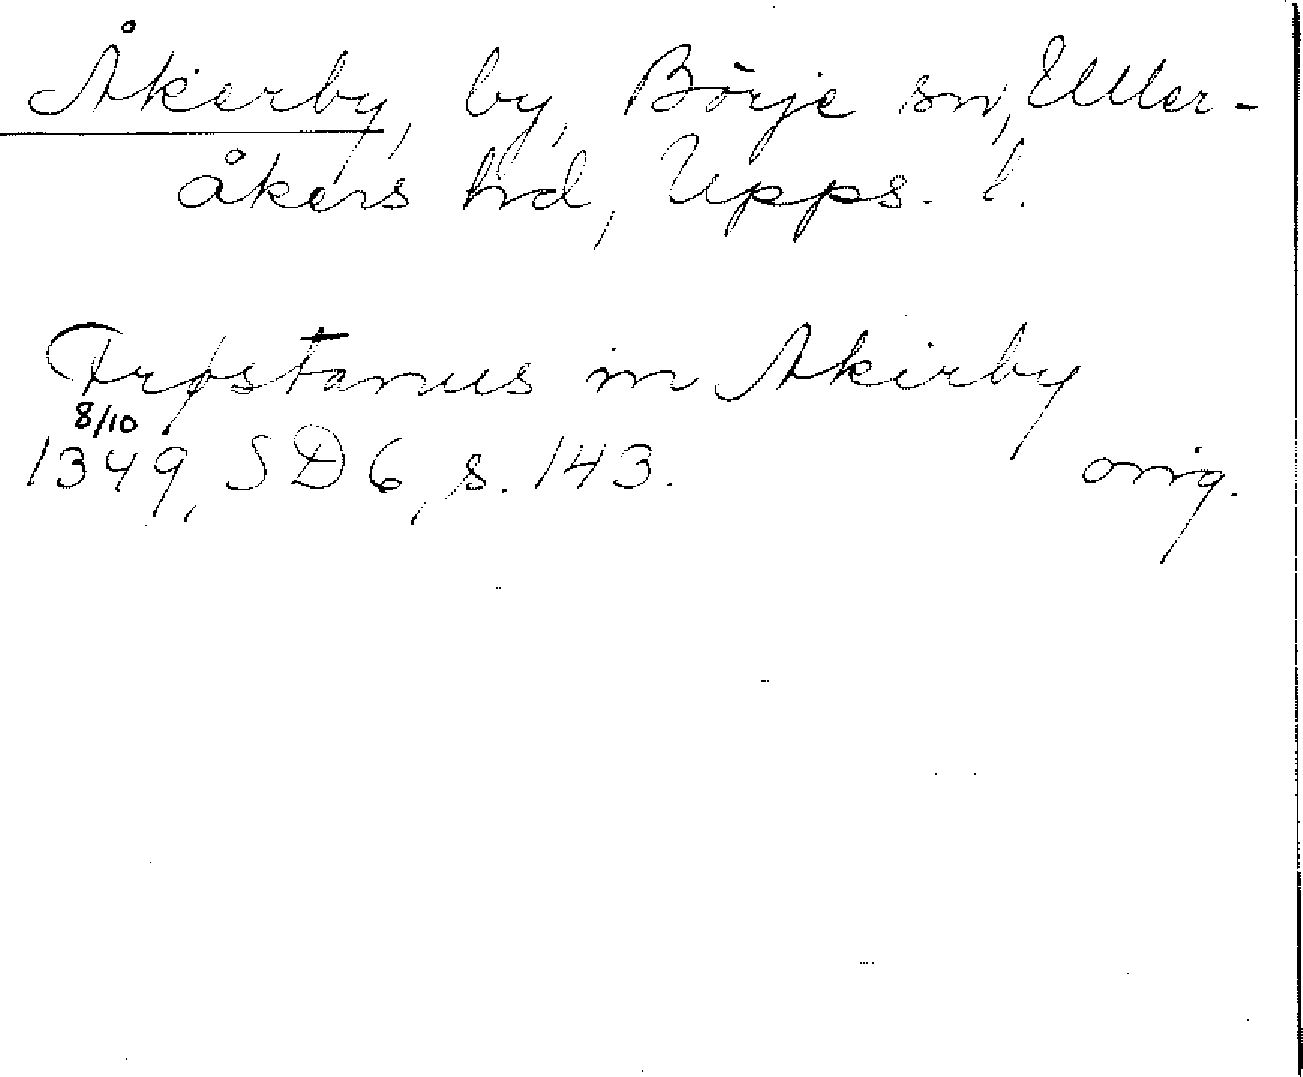 Åkerby, by, Börje sn, Uller-
åkers hd, Upps. l.
Frøstanus in Akirby
8/10
1349, SD 6, s. 143. orig.